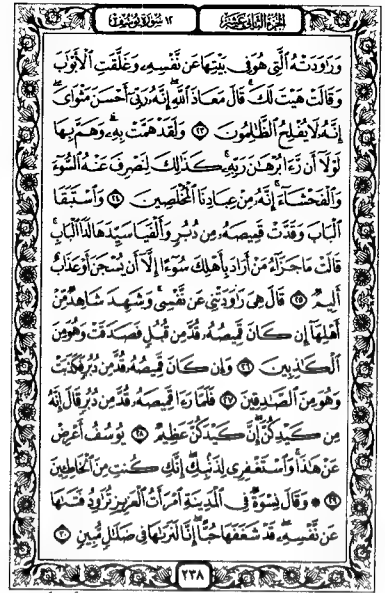 الجزء الثاني عشر
١٢ سورة يوسف
وَرَٰوَدَتْهُ ٱلَّتِى هُوَ فِى بَيْتِهَا عَن نَّفْسِهِۦ وَغَلَّقَتِ ٱلْأَبْوَٰبَ
وَقَالَتْ هَيْتَ لَكَ ۚ قَالَ مَعَاذَ ٱللَّهِ ۖ إِنَّهُۥ رَبِّىٓ أَحْسَنَ مَثْوَاىَ ۖ
إِنَّهُۥ لَا يُفْلِحُ ٱلظَّٰلِمُونَ ٢٣ وَلَقَدْ هَمَّتْ بِهِۦ ۖ وَهَمَّ بِهَا
لَوْلَآ أَن رَّءَا بُرْهَٰنَ رَبِّهِۦ ۚ كَذَٰلِكَ لِنَصْرِفَ عَنْهُ ٱلسُّوٓءَ
وَٱلْفَحْشَآءَ ۚ إِنَّهُۥ مِنْ عِبَادِنَا ٱلْمُخْلَصِينَ ٢٤ وَٱسْتَبَقَا
ٱلْبَابَ وَقَدَّتْ قَمِيصَهُۥ مِن دُبُرٍ وَأَلْفَيَا سَيِّدَهَا لَدَا ٱلْبَابِ ۚ
قَالَتْ مَا جَزَآءُ مَنْ أَرَادَ بِأَهْلِكَ سُوٓءًا إِلَّآ أَن يُسْجَنَ أَوْ عَذَابٌ
أَلِيمٌ ٢٥ قَالَ هِىَ رَٰوَدَتْنِى عَن نَّفْسِى ۚ وَشَهِدَ شَاهِدٌ مِّنْ
أَهْلِهَآ إِن كَانَ قَمِيصُهُۥ قُدَّ مِن قُبُلٍ فَصَدَقَتْ وَهُوَ مِنَ
ٱلْكَٰذِبِينَ ٢٦ وَإِن كَانَ قَمِيصُهُۥ قُدَّ مِن دُبُرٍ فَكَذَبَتْ
وَهُوَ مِنَ ٱلصَّٰدِقِينَ ٢٧ فَلَمَّا رَءَا قَمِيصَهُۥ قُدَّ مِن دُبُرٍ قَالَ إِنَّهُۥ
مِن كَيْدِكُنَّ ۖ إِنَّ كَيْدَكُنَّ عَظِيمٌ ٢٨ يُوسُفُ أَعْرِضْ
عَنْ هَٰذَا ۚ وَٱسْتَغْفِرِى لِذَنۢبِكِ ۖ إِنَّكِ كُنتِ مِنَ ٱلْخَاطِـِٔينَ
٢٩ ۞ وَقَالَ نِسْوَةٌ فِى ٱلْمَدِينَةِ ٱمْرَأَتُ ٱلْعَزِيزِ تُرَٰوِدُ فَتَىٰهَا
عَن نَّفْسِهِۦ ۖ قَدْ شَغَفَهَا حُبًّا ۖ إِنَّا لَنَرَىٰهَا فِى ضَلَٰلٍ مُّبِينٍ ٣٠
٢٣٨